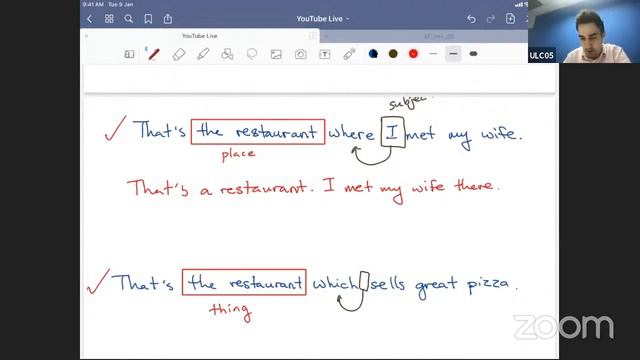 9:41 AM Tue 9 Jan
YouTube Live
YouTube Live
ULC05
subjec
That's the restaurant where I met my wife.
place
That's a restaurant. I met my wife there.
That's the restaurant which sells great pizza.
thing
zoom